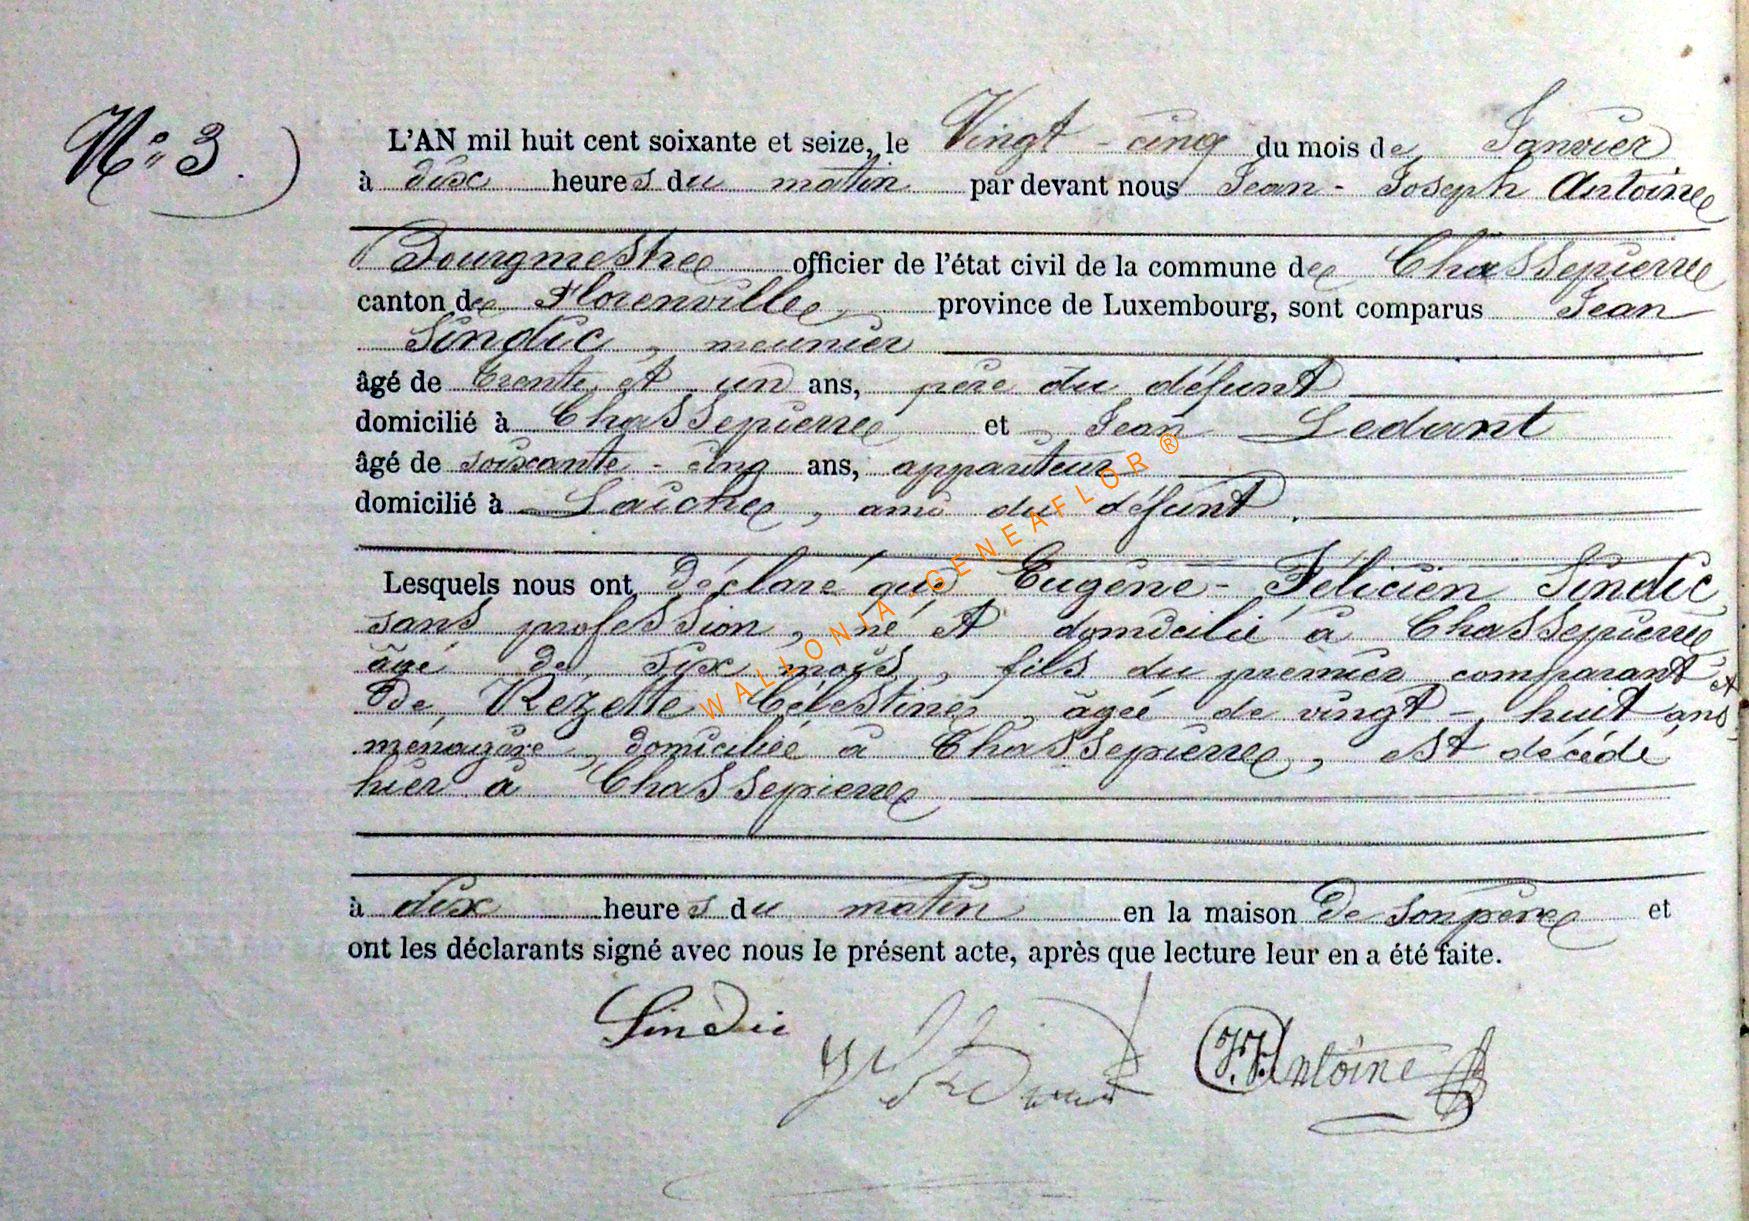 N° 3
L'AN mil huit cent soixante et seize, le Vingt-cinq du mois de Janvier
à dix heures du matin par devant nous Jean-Joseph Antoine
Bourgmestre officier de l'état civil de la commune de Chassepierre
canton de Florenville province de Luxembourg, sont comparus Jean
Sindic, meunier
âgé de trente et un ans, père du défunt
domicilié à Chassepierre et Jean Ledant
âgé de soixante-cinq ans, appariteur
domicilié à Laiche, ami du défunt.
Lesquels nous ont déclaré que Eugène-Félicien Sindic
sans profession, né et domicilié à Chassepierre
âgé de six mois, fils du premier comparant et
de Rezette Célestine, âgée de vingt-huit ans,
ménagère, domiciliée à Chassepierre, est décédé
hier à Chassepierre
à dix heures du matin en la maison de son père et
ont les déclarants signé avec nous le présent acte, après que lecture leur en a été faite.
Sindic J Ledant J.J. Antoine
WALLONIA GENEAFLOR ®